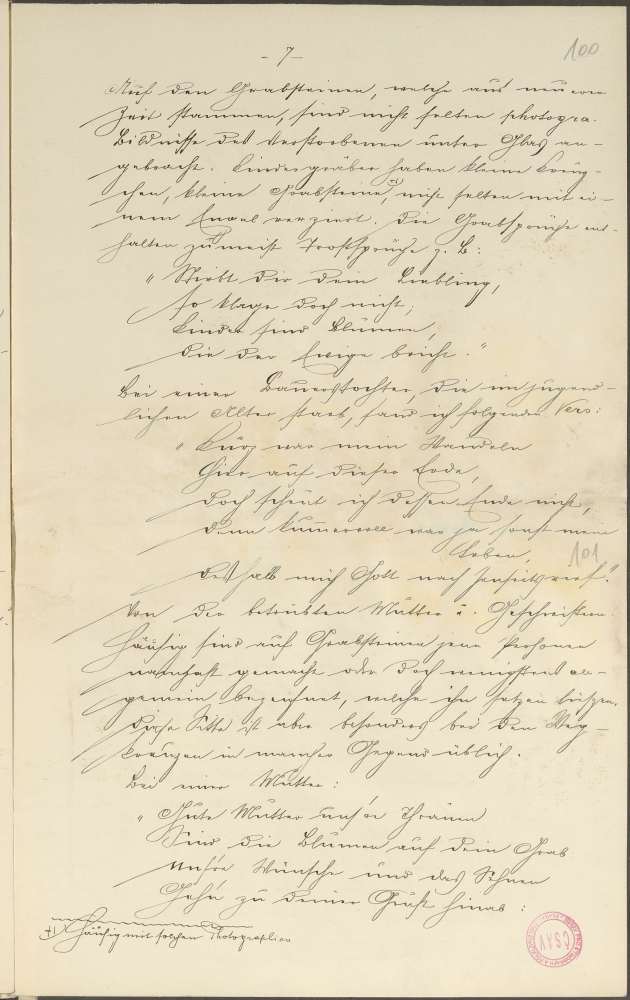 - 7 -
100
Auf den Grabsteinen, welche aus neuerer
Zeit stammen, sind nicht selten photogra.
Bildnisse des Verstorbenen unter Glas an-
gebracht. Kindergräber haben kleine Kreuz-
chen, kleine Grabsteine, +) nicht selten mit ei-
nem Engel verziert. Die Grabsprüche ent-
halten zumeist Trostsprüche z. B:
"Stirbt Dir dein Liebling,
so klage doch nicht;
Kinder sind Blumen,
die der Ewige bricht."
Bei einer Bauerstochter, die im jugend-
lichen Alter starb, fand ich folgenden Vers:
"Kurz war mein Wandeln
Hier auf dieser Erde,
Doch scheut ich dessen Ende nicht,
Denn kummervoll war ja sonst mein
Leben,
101
Deshalb mich Gott nach Jenseits rief."
Von der betrübten Mutter u. Geschwistern.
Häufig sind auf Grabsteinen jene Personen
namhaft gemacht oder doch wenigstens al-
gemein bezeichnet, welche ihn setzen ließen.
Diese Sitte ist aber besonders bei den Weg-
kreuzen in mancher Gegend üblich.
Bei einer Mutter:
"Gute Mutter uns're Thränen
Sind die Blumen auf dein Grab
Uns're Wünsche und das Sehnen
Geh'n zu deiner Gruft hinab:
+) Häufig mit solchen Photographien
ČSAV